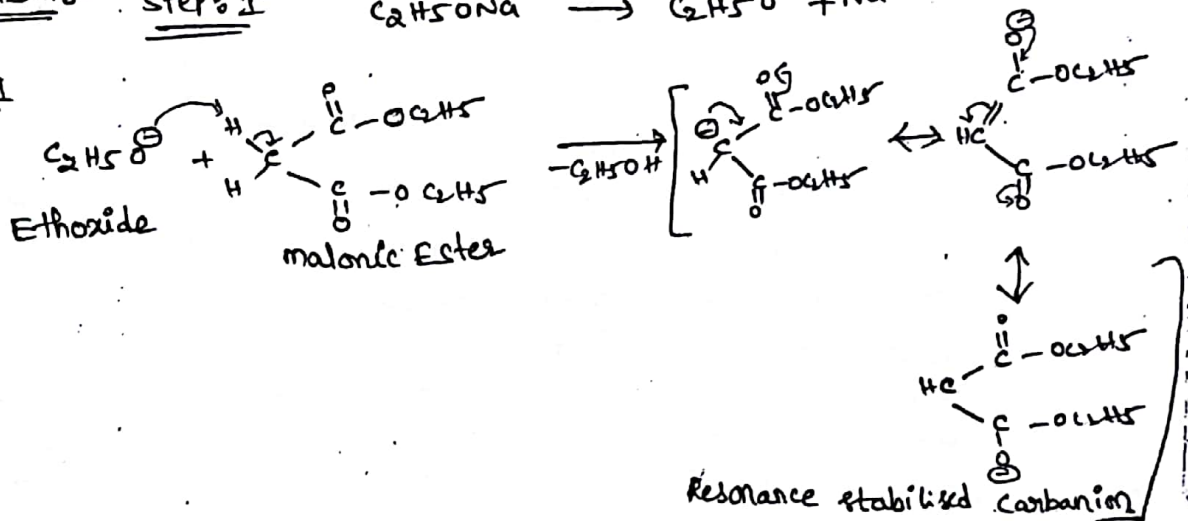 Step: I C2H5ONa → C2H5O + Na
C2H5O⊖ + H H C C=O -OC2H5 C=O -OC2H5 -C2H5OH → [ ⊖ C H C=O -OC2H5 C=O -OC2H5 ↔ HC C-O⊖ -OC2H5 C=O -OC2H5
Ethoxide
malonic Ester
↕
HC C=O -OC2H5 C-O⊖ -OC2H5 ]
Resonance stabilised Carbanion